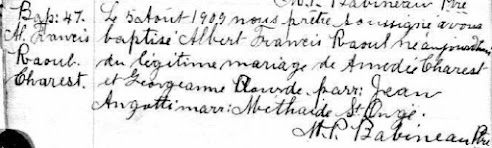 M. P. Babineau Ptre
Bap: 47. Le 5 août 1909 nous prêtre soussigné avons
Al. Francis baptisé Albert Francis Raoul né aujourd'hui
Raoul. du légitime mariage de Amédée Charest
Charest. et Georgeanne Plourde. parr: Jean
Angotti marr: Méthaide St Onge.
M. P. Babineau Ptre